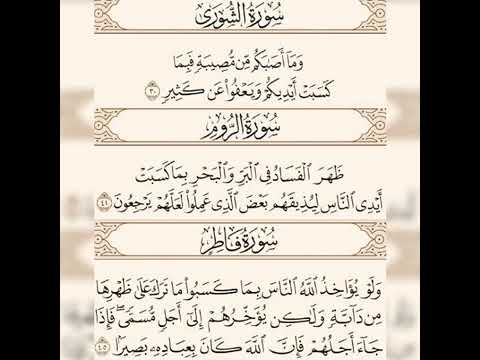 سُورَةُ الشُّورَىٰ
وَمَآ أَصَٰبَكُم مِّن مُّصِيبَةٖ فَبِمَا
كَسَبَتۡ أَيۡدِيكُمۡ وَيَعۡفُواْ عَن كَثِيرٖ ٣٠
سُورَةُ الرُّومِ
ظَهَرَ ٱلۡفَسَادُ فِي ٱلۡبَرِّ وَٱلۡبَحۡرِ بِمَا كَسَبَتۡ
أَيۡدِي ٱلنَّاسِ لِيُذِيقَهُم بَعۡضَ ٱلَّذِي عَمِلُواْ لَعَلَّهُمۡ يَرۡجِعُونَ ٤١
سُورَةُ فَاطِرٍ
وَلَوۡ يُؤَاخِذُ ٱللَّهُ ٱلنَّاسَ بِمَا كَسَبُواْ مَا تَرَكَ عَلَىٰ ظَهۡرِهَا
مِن دَآبَّةٖ وَلَٰكِن يُؤَخِّرُهُمۡ إِلَىٰٓ أَجَلٖ مُّسَمّٗىۖ فَإِذَا
جَآءَ أَجَلُهُمۡ فَإِنَّ ٱللَّهَ كَانَ بِعِبَادِهِۦ بَصِيرَۢا ٤٥